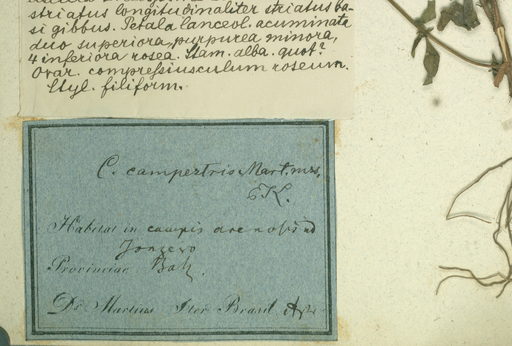 striatus longitudinaliter striatus ba-
si gibbus. Petala lanceol. acuminata
duo superiora purpurea minora,
4 inferiora rosea. Stam. alba. quot?
Ovar. compressiusculum roseum.
Styl. filiform.
C. campestris Mart. mss.
Habitat in campis arenosis ad
Provinciae Bah.
Dr. Martius Iter Brasil.